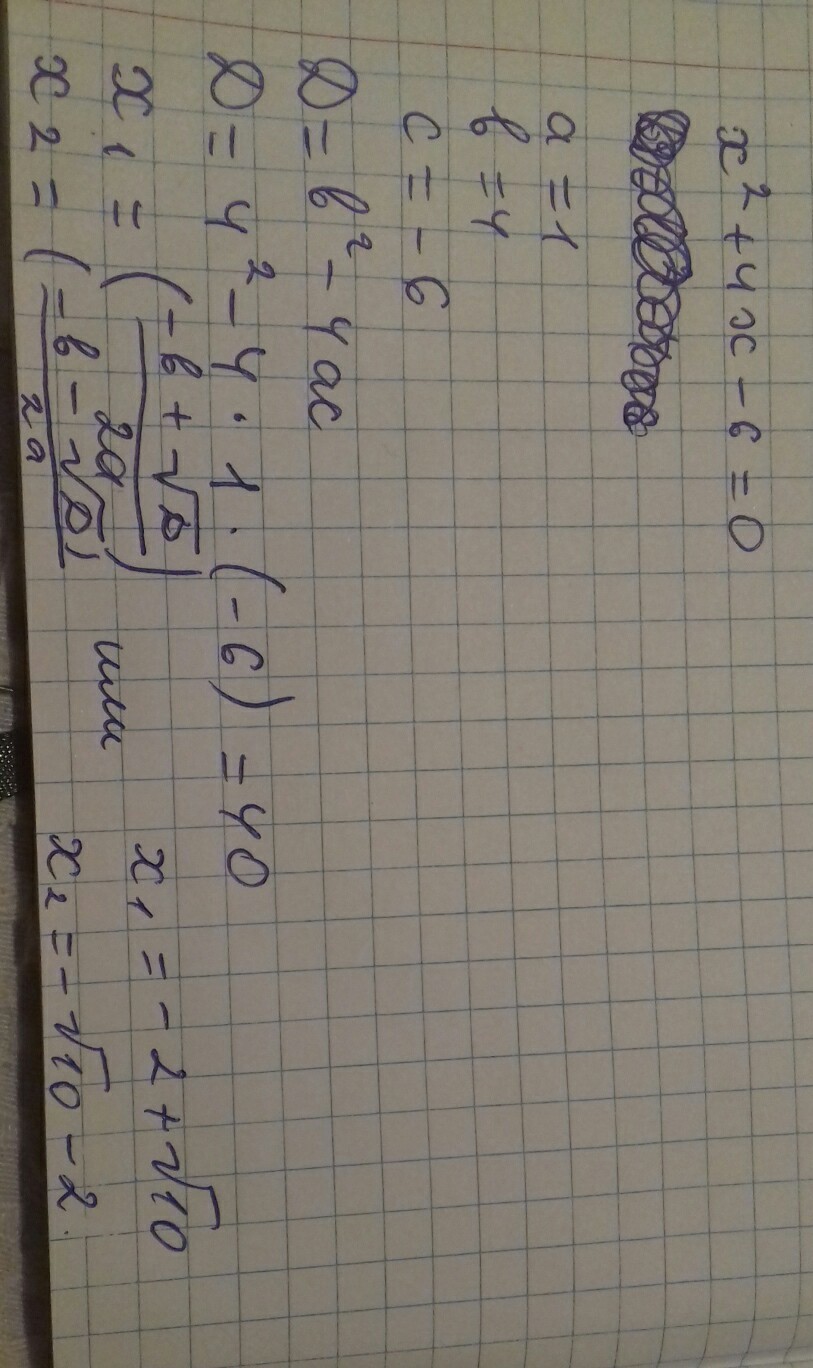 x² + 4x - 6 = 0
a = 1
b = 4
c = - 6
D = b² - 4ac
D = 4² - 4 · 1 · (-6) = 40
x₁ = (-b + √D) / 2a) или x₁ = - 2 + √10
x₂ = (-b - √D) / 2a x₂ = - √10 - 2.